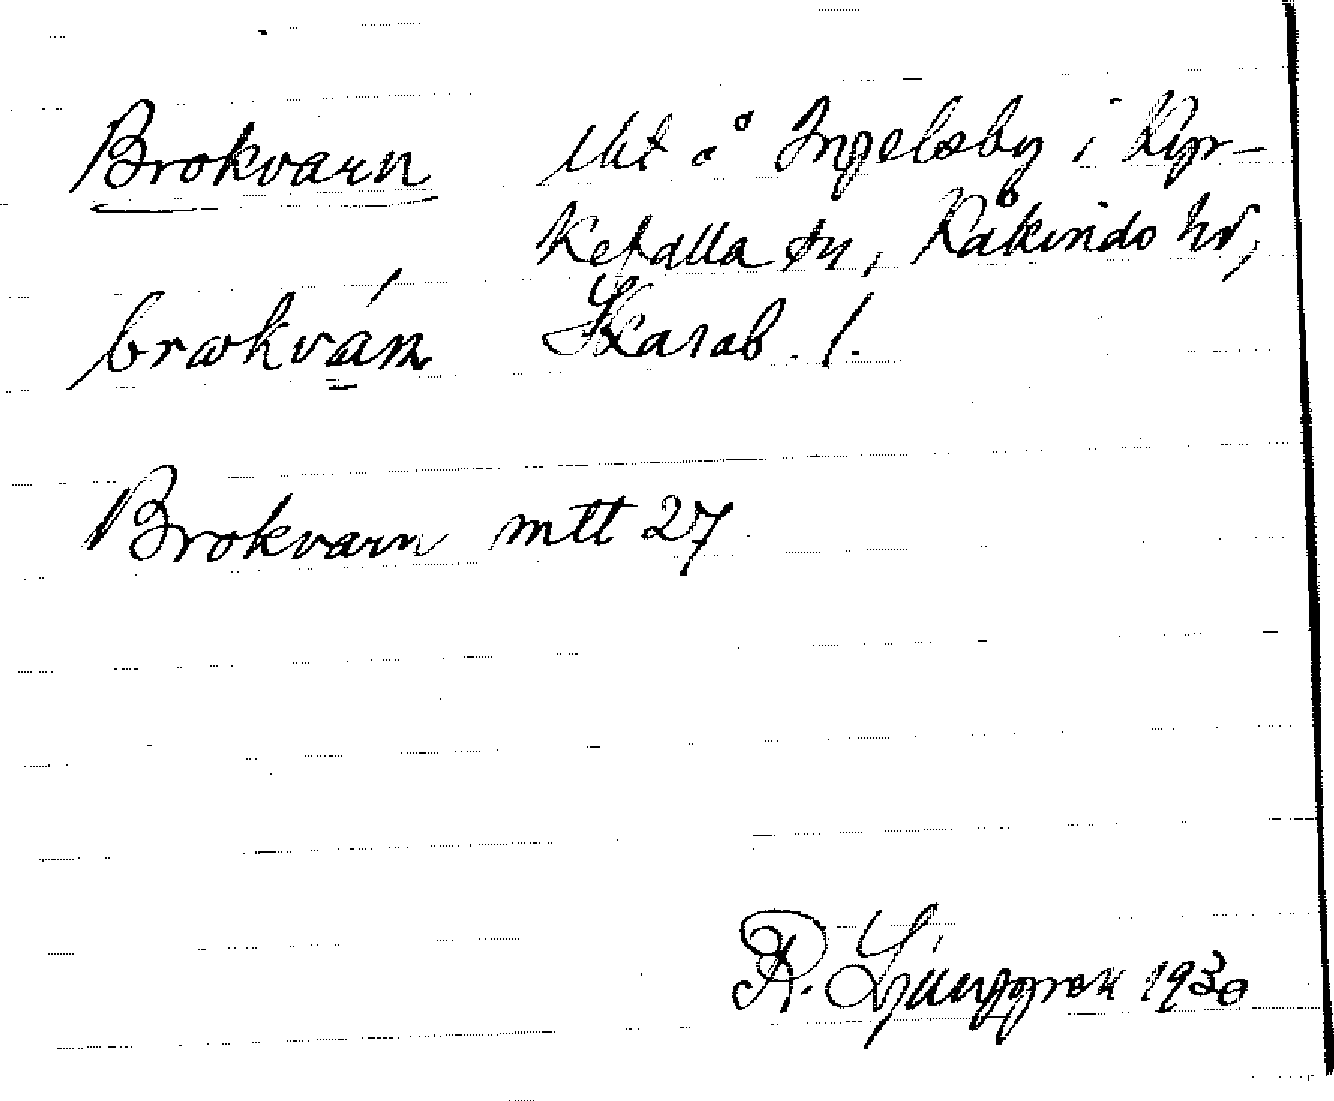 Brokvarn Ukt å Ingelsby i Kyr-
kefalla sn, Kåkinds hd,
bræk̀várn Skarab. l.
Brokvarn mtt 27
R. Ljunggren 1930